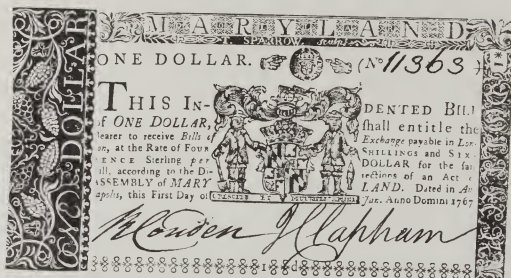 MARYLAND
T. SPARROW. Sculp.
ONE DOLLAR. (No 11363)
THIS IN- DENTED BILL
of ONE DOLLAR, shall entitle the
Bearer to receive Bills of Exchange payable in Lon-
on, at the Rate of FOUR SHILLINGS and SIX-
PENCE Sterling per DOLLAR for the sai
ill, according to the Di- rections of an Act of
ASSEMBLY of MARY LAND. Dated in An
apolis, this First Day of Jan. Anno Domini 1767
CRESCITE ET MULTIPLICAMINI
R Couden J Clapham
ONE DOLLAR